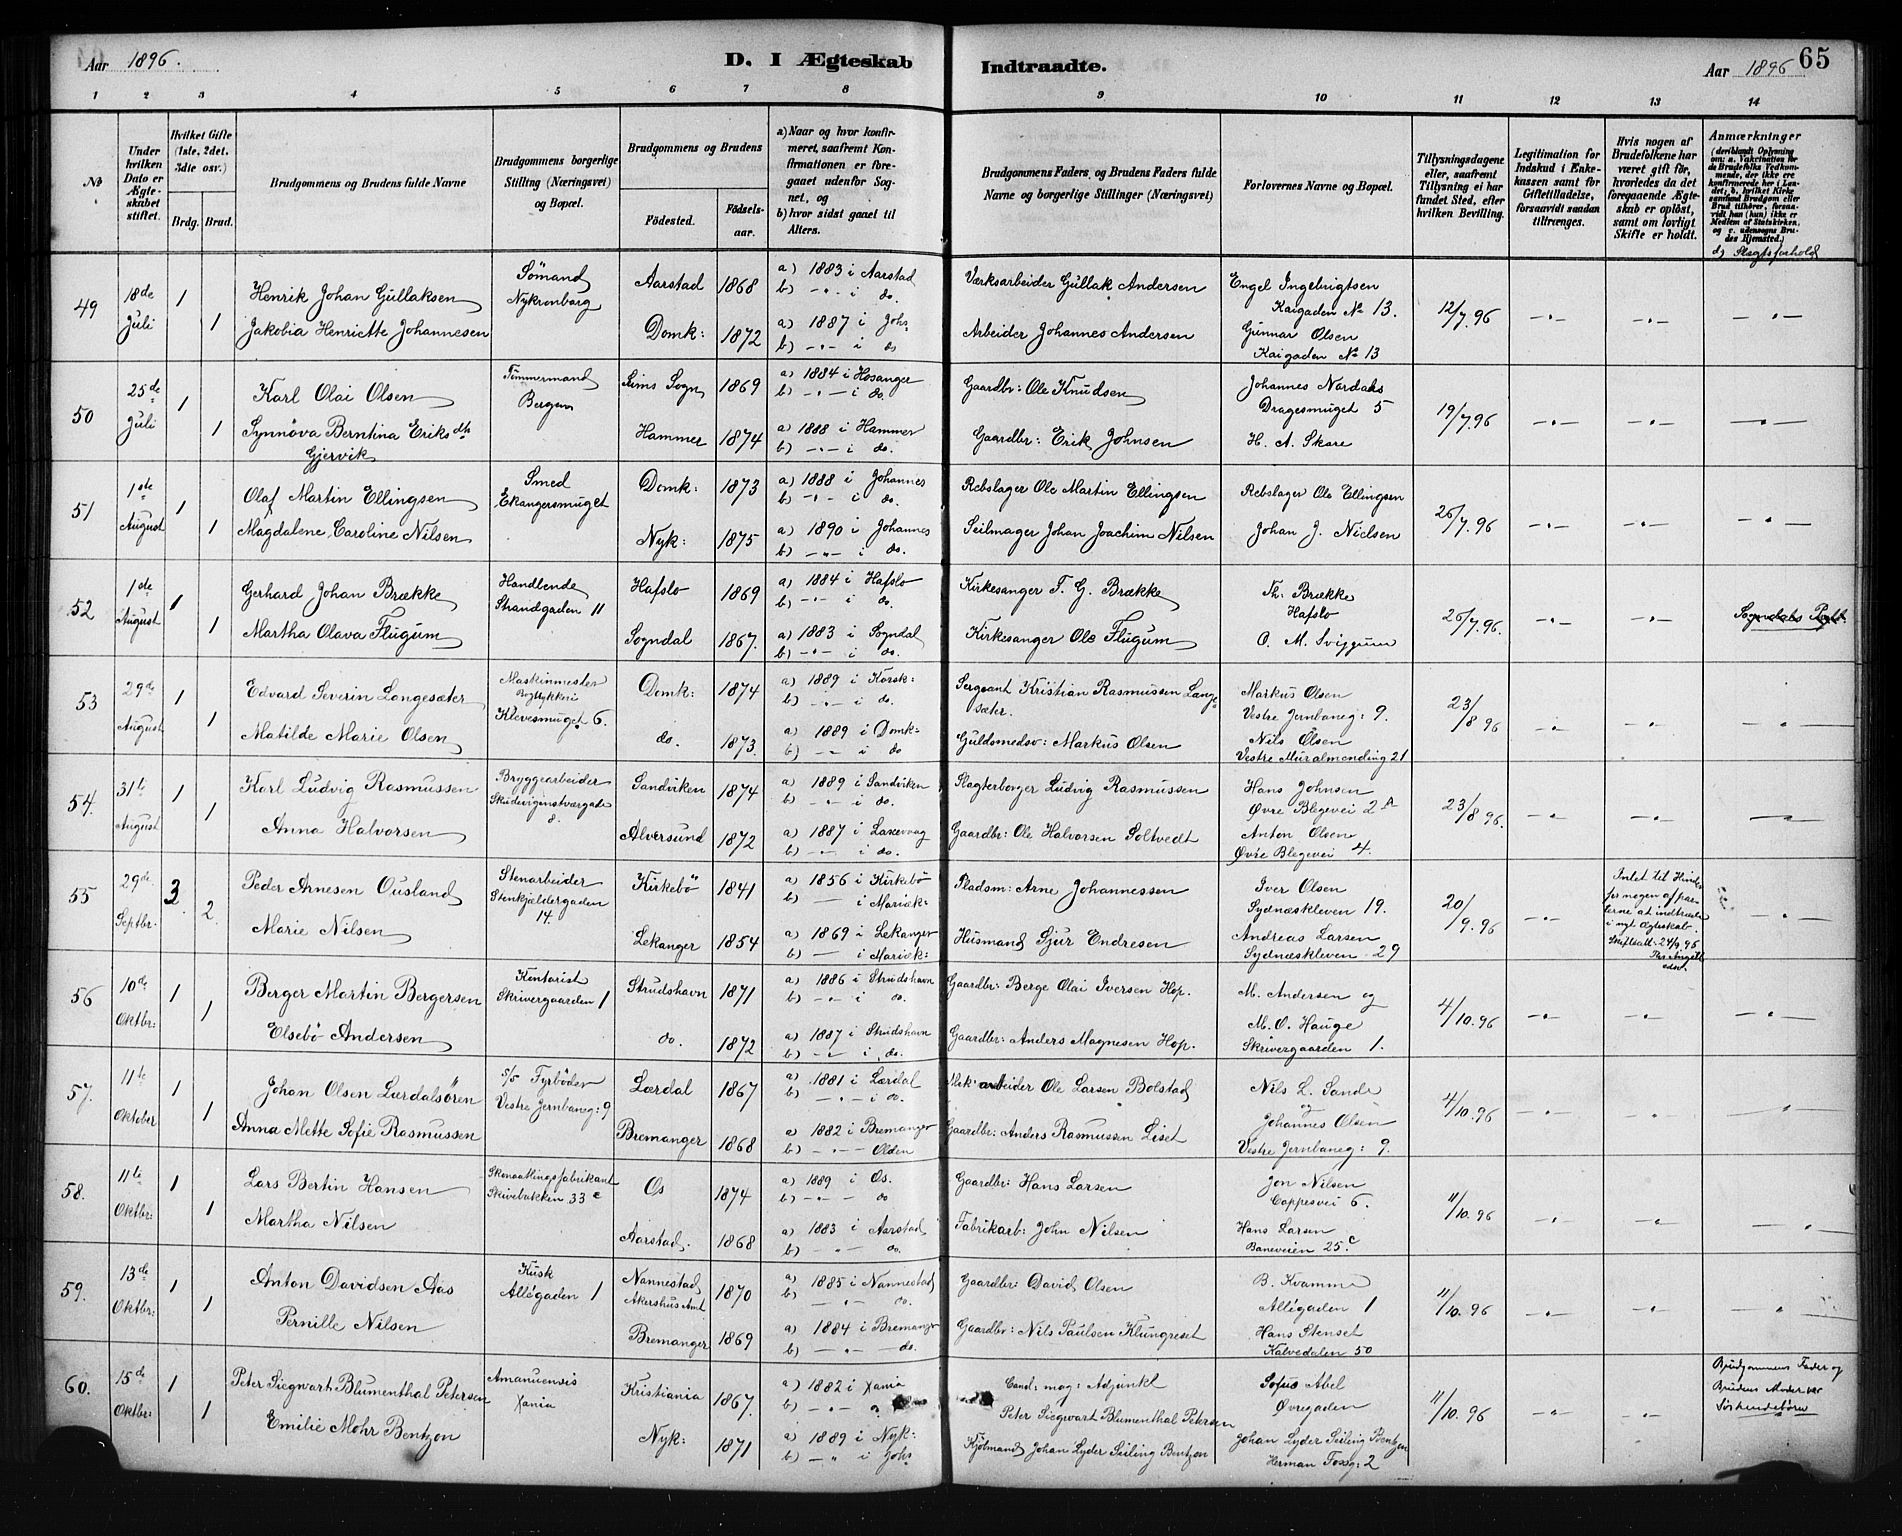 Aar 1896.
D. I Ægteskab
Indtraadte.
Aar 1896
65
1 2 3 4 5 6 7 8 9 10 11 12 13 14
No
Under hvilken Dato er Ægteskabet stiftet.
Hvilket Gifte (1ste, 2det, 3die osv.)
Brdg. Brud.
Brudgommens og Brudens fulde Navne
Brudgommens borgerlige Stilling (Næringsvei) og Bopæl.
Brudgommens og Brudens
Fødested.
Fødselsaar.
a) Naar og hvor konfirmeret, saafremt Konfirmationen er foregaaet udenfor Sognet, og
b) hvor sidst gaaet til Alters.
Brudgommens Faders, og Brudens Faders fulde Navne og borgerlige Stillinger (Næringsvei)
Forlovernes Navne og Bopæl.
Tillysningsdagene eller, saafremt Tillysning ei har fundet Sted, efter hvilken Bevilling.
Legitimation for Indskud i Enkekassen samt for Giftetilladelse, forsaavidt saadan tiltrænges.
Hvis nogen af Brudefolkene har været gift før, hvorledes da det foregaaende Ægteskab er opløst, samt om lovligt Skifte er holdt.
Anmærkninger
(deriblandt Oplysning om: a. Vakcination for de Brudefolks Vedkommende, der ikke ere konfirmerede her i Landet; b. hvilket Kirkesamfund Brudgom eller Brud tilhører, forsaavidt han (hun) ikke er Medlem af Statskirken, og c. udensogns Brudes Hjemsted.)
d) Slagtsforhold
49 18de Juli 1 Henrik Johan Gullaksen Sömand Nykronborg Aarstad 1868 a) 1883 i Aarstad b) -"- i do. Værksarbeider Gullak Andersen Engel Ingebrigtsen Kaigaden No 13. 12/7.96 -"- -"- -"-
1 Jakobia Henriette Johannesen Domk: 1872 a) 1887 i Johs b) -"- i do Arbeider Johannes Andersen Gunnar Olsen Kaigaden No 13
50 25de Juli 1 Karl Olai Olsen Tømmermand Bergen Seims Sogn 1869 a) 1884 i Hosanger b) -"- i do. Gaardbr: Ole Knudsen Johannes Nordaks Dragesmuget 5 19/7.96 -"- -"- -"-
1 Synnöva Berntina Eriksdtr Gjervik Hammer 1874 a) 1888 i Hammer b) -"- i do. Gaardbr: Erik Johnsen H. A. Skare
51 1ste August 1 Olaf Martin Ellingsen Smed Ekangersmuget Domk: 1873 a) 1888 i Johannes b) -"- i do. Rebslager Ole Martin Ellingsen Rebslager Ole Ellingsen 26/7.96 -"- -"- -"-
1 Magdalene Caroline Nilsen Nyk: 1875 a) 1890 i Johannes b) -"- i do. Seilmager Johan Joachim Nilsen Johan J. Nielsen
52 1ste August 1 Gerhard Johan Brække Handlende Strandgaden 11 Hafslo 1869 a) 1884 i Hafslo b) -"- i do. Kirkesanger T. G. Brække Th: Brække Hafslo 26/7.96. -"- -"-
1 Martha Olava Flugum Sogndal 1867. a) 1883 i Sogndal b) -"- i do. Kirkesanger Ole Flugum O. M. Sviggum
53 29de August 1 Edvard Severin Langesæter Maskinmester Klevesmuget 6. Domk: 1874 a) 1889 i Korsk: b) -"- i do. Sergeant Kristian Rasmussen Langesæter. Markus Olsen Vestre Jernbaneg: 9. 23/8 96 -"- -"- -"-
1 Matilde Marie Olsen do. 1873. a) 1889 i Domk: b) -"- i do Guldsmedsv: Markus Olsen Nils Olsen Vestre Muralmending 21
54. 31te August 1 Karl Ludvig Rasmussen Bryggearbeider 8. Sandviken 1874 a) 1889 i Sandviken b) -"- i do. Slagterborger Ludvig Rasmussen Hans Johnsen Øvre Blegevei 2A 23/8 96. -"- -"- -"-
1 Anna Halvorsen Alversund 1872 a) 1887 i Laxevaag b) -"- i do. Gaardbr: Ole Halvorsen Soltvedt Anton Olsen Øvre Blegevei 4.
55 29de Septbr. 3. Peder Arnesen Ousland Stenarbeider Stenkjældergaden 14. Kirkebö 1841 a) 1856 i Kirkebö b) — i Mariæk: Pladsm: Arne Johannessen Iver Olsen Sydnæskleven 19. 20/9.96 -"- Intet til Hinder for nogen af parterne at indtræde i nyt Ægteskab. Skifteatt. 24/9.96 -"-
2 Marie Nilsen Lekanger 1854 a) 1869 i Lekanger b) — i Mariæk: Husmand Sjur Endresen Andreas Larsen Sydnæskleven 29
56 10de Oktbr: 1 Berger Martin Bergersen Kontorist Skrivergaarden 1 Strudshavn 1871 a) 1886 i Strudshavn b) -"- i do. Gaardbr: Berge Olai Iversen Hop. M. Andersen og 4/10.96 -"- -"- -"-
1 Elsebö Andersen do. 1872 a) 1887 i Strudshavn b) -"- i do. Gaardbr: Anders Magnesen Hop. M. O. Hauge Skrivergaarden 1.
57. 11te Oktober 1 Johan Olsen Lærdalsören S/S Fyrböder Vestre Jernbaneg: 9 Lærdal 1867 a) 1881 i Lærdal b) -"- i do. arbeider Ole Larsen Bolstad Nils L. Sande og 4/10.96 -"- -"- -"-
1 Anna Mette Sofie Rasmussen Bremanger 1868 a) 1882 i Bremanger b) -"- Olden Gaardbr: Anders Rasmussen Liset Johannes Olsen Vestre Jernbaneg: 9.
58. 11te Oktbr: 1 Lars Bertin Hansen Skivebakken 33c Os 1874 a) 1889 i Os. b) -"- do Gaardbr: Hans Larsen Jon Nilsen Cappesvei 6. 11/10.96 -"- -"- -"-
1 Martha Nilsen Aarstad. 1868 a) 1883 i Aarstad b) -"- do. Fabrikarb: John Nilsen Hans Larsen Baneveien 25c
59. 13de Oktbr: 1 Anton Davidsen Aas Kusk Allégaden 1 Nannestad Akershus Amt 1870 a) 1885 i Nannestad b) -"- do. Gaardbr: David Olsen B. Kvamme Allégaden 1 11/10.96 -"- -"- "
1 Pernille Nilsen Bremanger 1869 a) 1884 i Bremanger b) -"- do. Gaardbr: Nils Paulsen Klungreset Hans Stenset Kalvedalen 50
60. 15de Oktbr: 1 Peter Siegwart Blumenthal Petersen Amanuensis Xania Kristiania 1867. a) 1882 i Xania b) -"- " Cand: mag: Adjunkt Peter Siegwart Blumenthal Petersen Sofus Abel Øvregaden 11/10.96 -"- -"- Brudgommens Fader og Brudens Moder var Söskendebörn
1 Emilie Mohr Bentzon Nyk: 1871 a) 1889 i Nyk: b) -"- i Johs Kjøbmand Johan Lyder Seiling Bentzon Johan Lyder Seiling Bentzon Herman Fossg: 2